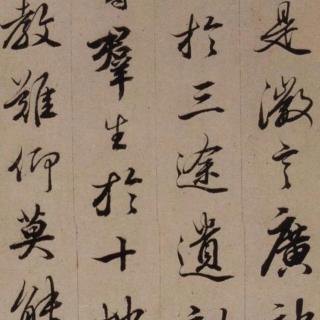 是微言廣
於三途遺
羣生於十
教難仰莫能